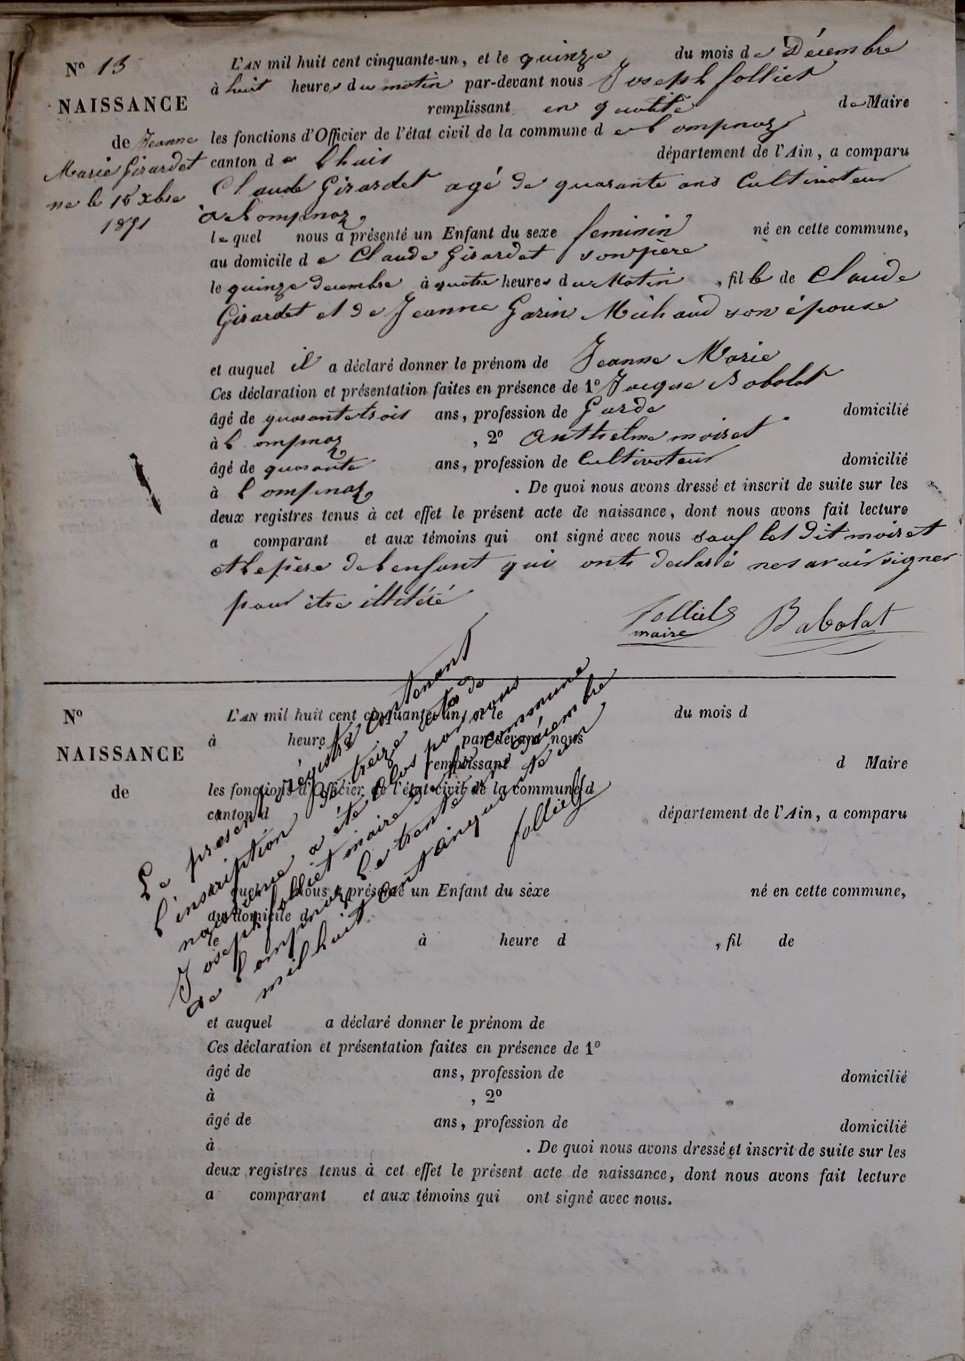 N° 13
NAISSANCE
de Jeanne
Marie Girardet
né le 15 xbre
1851
L'AN mil huit cent cinquante-un, et le quinze du mois de Décembre
à huit heures du matin par-devant nous Joseph folliet
remplissant en qualité de Maire
les fonctions d'Officier de l'état civil de la commune de Lompnaz
canton de Lhuis département de l'Ain, a comparu
Claude Girardet agé de quarante ans Cultivateur
à Lompnaz
lequel nous a présenté un Enfant du sexe feminin né en cette commune,
au domicile de Claude Girardet son père
le quinze decembre à quatre heures du Matin, fille de Claude
Girardet et de Jeanne Garin Michaud son épouse
et auquel il a déclaré donner le prénom de Jeanne Marie
Ces déclaration et présentation faites en présence de 1° Jacque Babolat
âgé de quarante trois ans, profession de Garde domicilié
à Lompnaz, 2° Anthelme moiret
âgé de quarante ans, profession de Cultivateur domicilié
à Lompnaz. De quoi nous avons dressé et inscrit de suite sur les
deux registres tenus à cet effet le présent acte de naissance, dont nous avons fait lecture
a comparant et aux témoins qui ont signé avec nous sauf le dit moiret
et le père de l'enfant qui ont déclaré ne savoir signer
pour être illitéré
folliet
maire
Babolat
N°
NAISSANCE
de
L'AN mil huit cent cinquante-un, et le du mois d
à heure d par-devant nous
remplissant d Maire
les fonctions d'Officier de l'état civil de la commune d
canton d département de l'Ain, a comparu
quel nous a présenté un Enfant du sexe né en cette commune,
au domicile d
le à heure d , fil de
et auquel a déclaré donner le prénom de
Ces déclaration et présentation faites en présence de 1°
âgé de ans, profession de domicilié
à , 2°
âgé de ans, profession de domicilié
à . De quoi nous avons dressé et inscrit de suite sur les
deux registres tenus à cet effet le présent acte de naissance, dont nous avons fait lecture
a comparant et aux témoins qui ont signé avec nous.
Le present régistre contenant
l'inscription de treize actes de
naissance a été clos par nous
Joseph folliet maire de la commune
de Lompnaz le trente un décembre
mil huit cent cinquante un
folliet